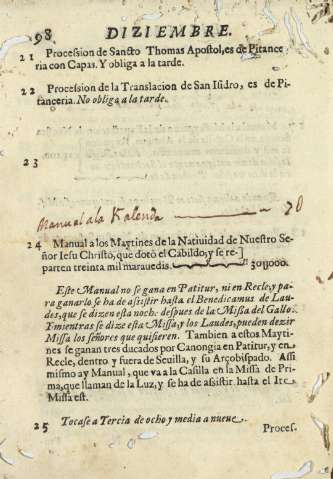 98 DIZIEMBRE.
21 Procession de Sancto Thomas Apostol, es de Pitance
ria con Capas. Y obliga a la tarde.
22 Procession de la Translacion de San Isidro, es de Pi-
tanceria. No obliga a la tarde.
23
Manual a la Kalenda 70
24 Manual a los Maytines de la Natiuidad de Nuestro Se-
ñor Iesu Christo, que dotò el Cabildo, y se re-]
parten treinta mil marauedis. 30U000.
Este Manual no se gana en Patitur, ni en Recle, y pa-
ra ganarlo se ha de asistir hasta el Benedicamus de Lau-
des, que se dizen esta noche despues de la Missa del Gallo.
Y mientras se dize esta Missa, y los Laudes, pueden dezir
Missa los señores que quisieren. Tambien a estos Mayti-
nes se ganan tres ducados por Canongia en Patitur, y en
Recle, dentro y fuera de Seuilla, y su Arçobispado. Assi
mismo ay Manual, que va a la Casilla en la Missa de Pri-
ma, que llaman de la Luz, y se ha de asistir hasta el Ite
Missa est.
25 Tocase a Tercia de ocho y media a nueve.
Proces.